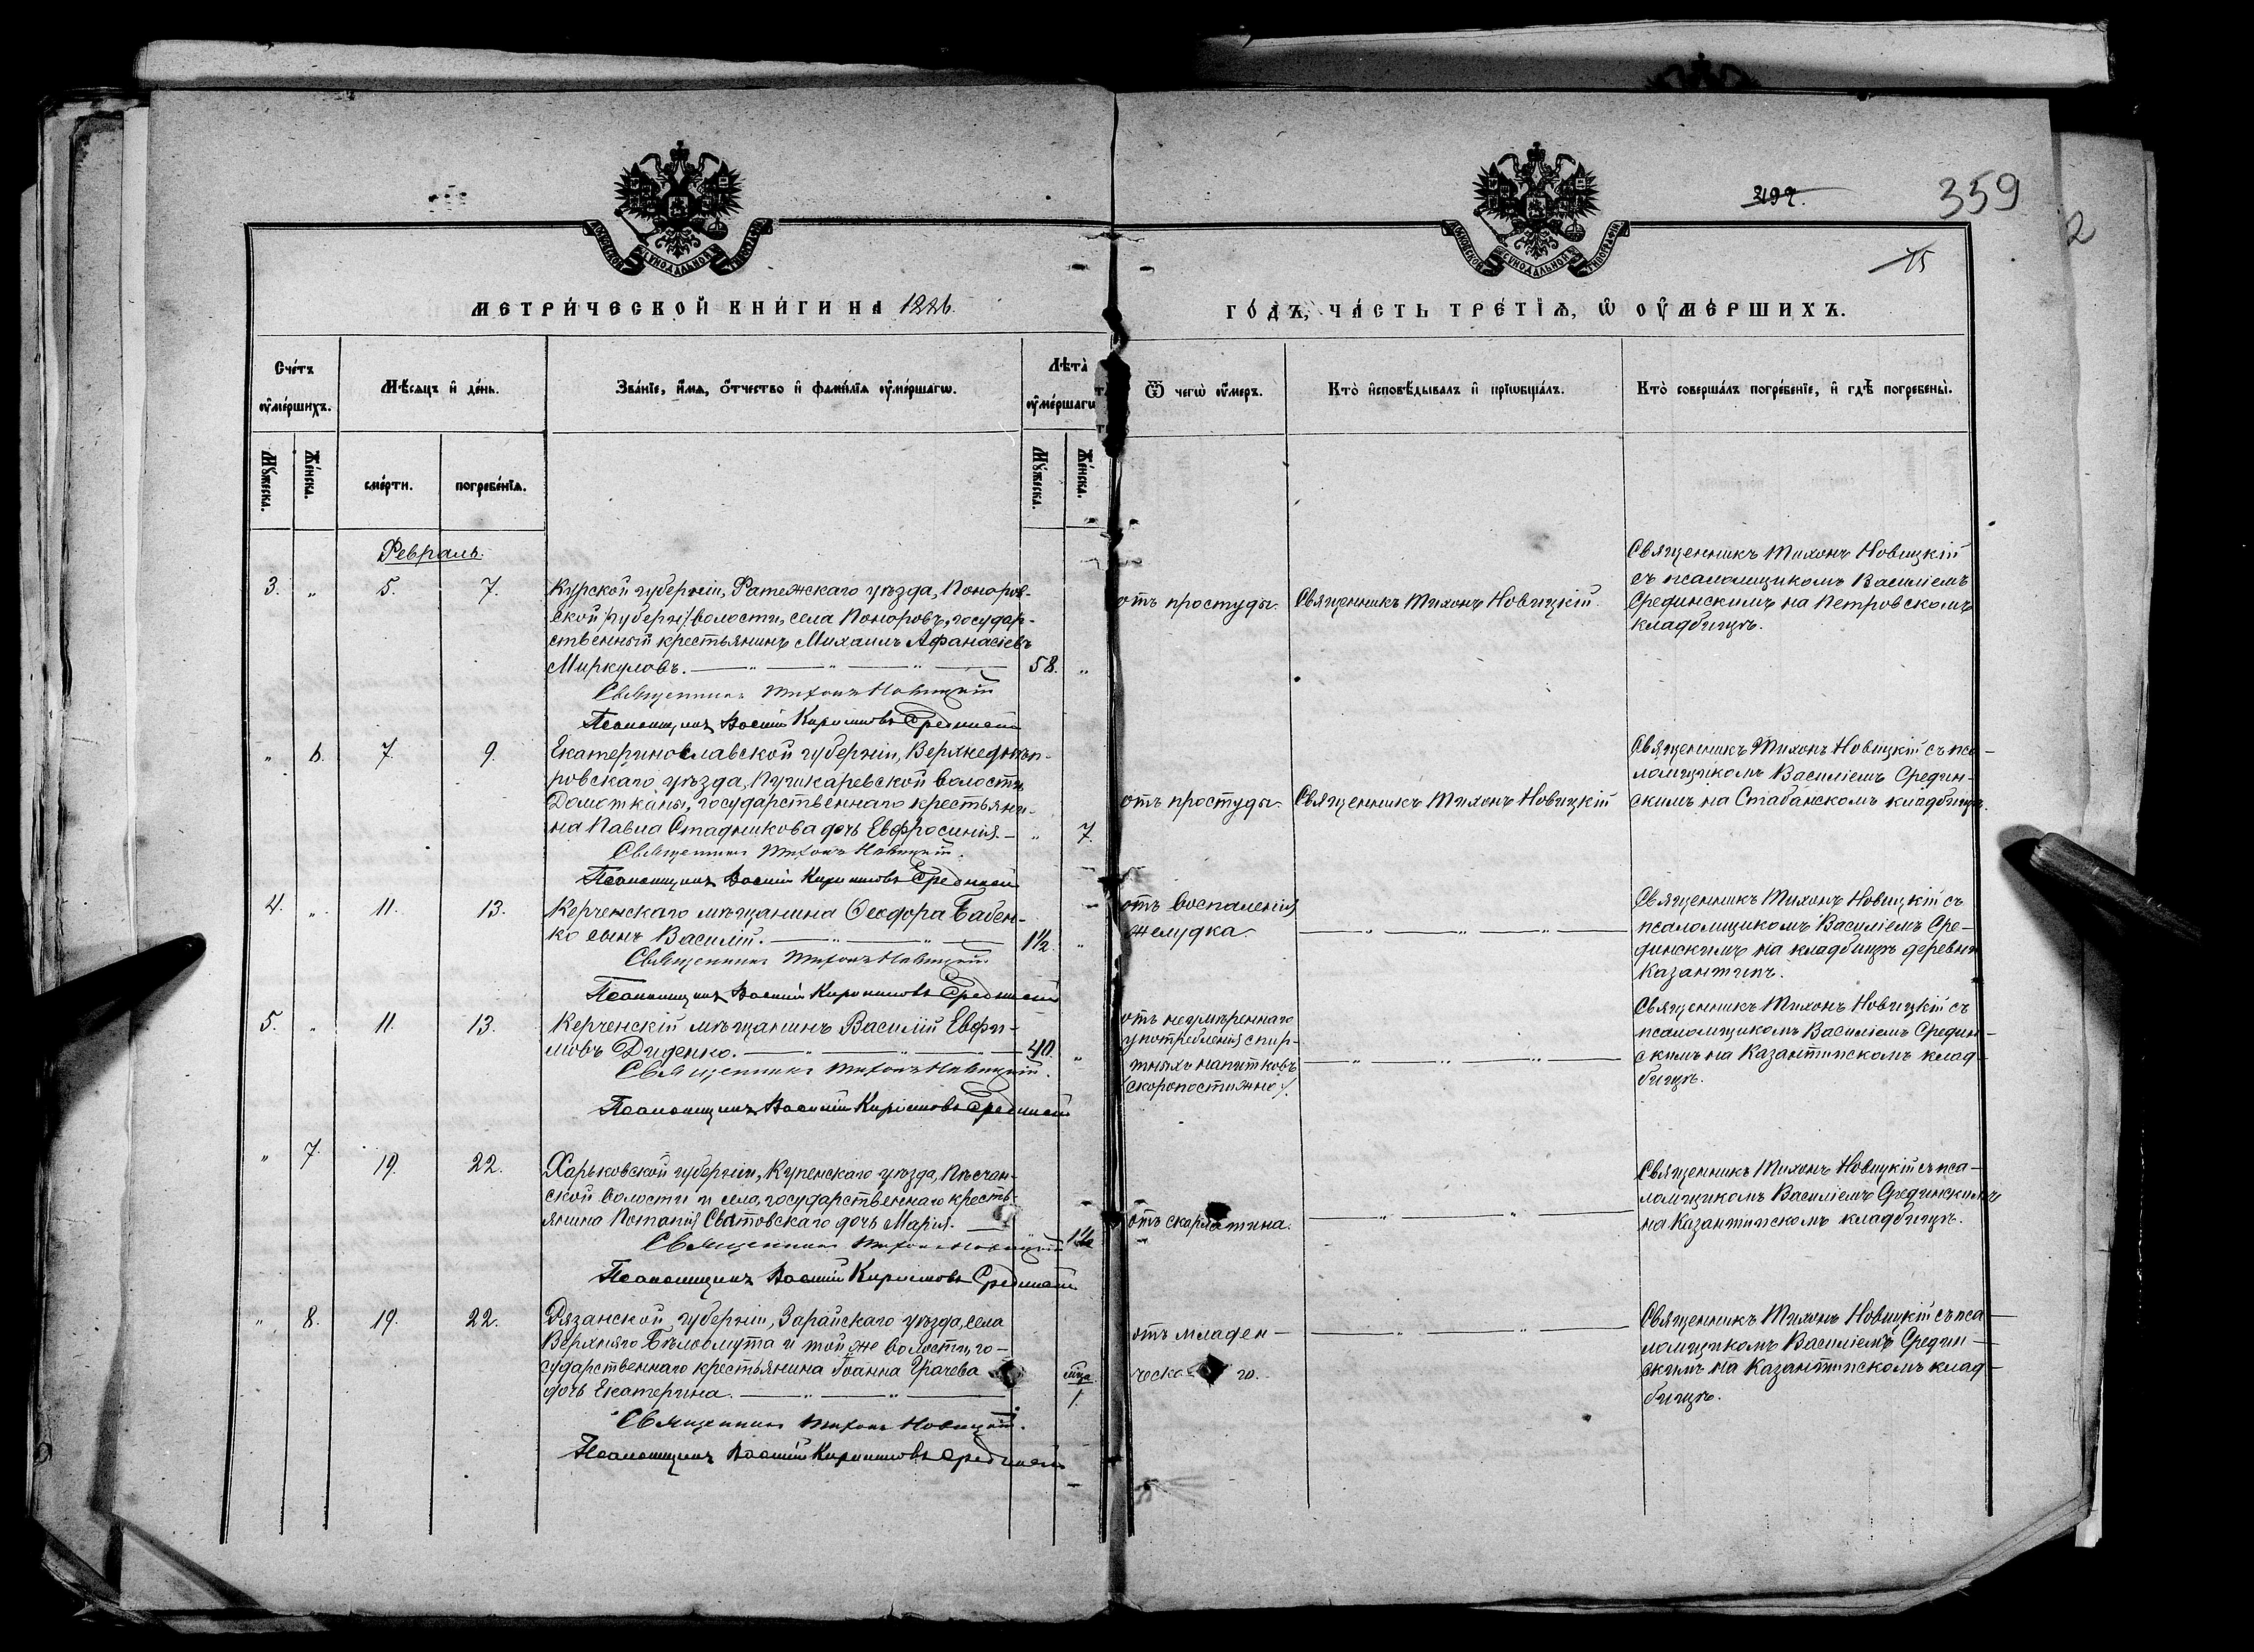 359
2
15
МОСКОВСКОЙ СѴНОДАЛЬНОЙ ТИПОГРАФІИ
МОСКОВСКОЙ СѴНОДАЛЬНОЙ ТИПОГРАФІИ
МЕТРИ́ЧЕСКОЙ КНИ́ГИ НА 1886.
ГО́ДЪ, ЧА́СТЬ ТРЕ́ТІѦ, Ѡ҆ ОУ҆МЕ́РШИХЪ.
Сче́тъ
оу҆ме́ршихъ.
Мѣ́сѧцъ и҆ де́нь.
Зва́нїе, и҆́мѧ, ѻ҆́тчество и҆ фамѝлїѧ оу҆ме́ршагѡ.
Лѣта̀
оу҆ме́ршагѡ
Ѿ чегѡ̀ оу҆́меръ.
Кто̀ и҆сповѣ́дывалъ и҆ прїѡбща́лъ.
Кто̀ соверша́лъ погребе́нїе, и҆ гдѣ̀ погребены̀.
Мꙋ́жеска.
Же́нска.
сме́рти.
погребе́нїѧ.
Мꙋ́жеска.
Же́нска.
Февраль.
3. „ 5. 7.
Курской губерніи, Фатежскаго уѣзда, Поныров-
ской /губерн/ волости, села Поноровъ, государ-
ственный крестьянинъ Михаилъ Афанасіевъ
Миркуловъ. 58. „
Священникъ Тихонъ Новицкій
Псаломщикъ Василій Кириловъ Срединскій
отъ простуды.
Священникъ Тихонъ Новицкій.
Священникъ Тихонъ Новицкій
съ псаломщикомъ Василіемъ
Срединскимъ на Петровскомъ
кладбищѣ.
„ 6. 7. 9.
Екатеринославской губерніи, Верхнеднѣп-
ровскаго уѣзда, Пушкаревской волости
Домотканы, государственнаго крестьяни-
на Павла Стадникова дочь Евфросинія. „ 7.
Священникъ Тихонъ Новицкій.
Псаломщикъ Василій Кириловъ Срединскій
отъ простуды.
Священникъ Тихонъ Новицкій
Священникъ Тихонъ Новицкій съ пса-
ломщикомъ Василіемъ Средин-
скимъ на Стабанскомъ кладбищѣ.
4. „ 11. 13.
Керченскаго мѣщанина Ѳеодора Бабен-
ко сынъ Василій. 1½. „
Священникъ Тихонъ Новицкій.
Псаломщикъ Василій Кириловъ Срединскій
отъ воспаленія
желудка.
Священникъ Тихонъ Новицкій съ
псаломщикомъ Василіемъ Сре-
динскимъ на кладбищѣ деревни
Казантипъ.
5. „ 11. 13.
Керченскій мѣщанинъ Василій Евфи-
мовъ Диденко. 40. „
Священникъ Тихонъ Новицкій.
Псаломщикъ Василій Кириловъ Срединскій
отъ неумѣреннаго
употребленія спир-
тныхъ напитковъ
/скоропостижно/.
Священникъ Тихонъ Новицкій съ
псаломщикомъ Василіемъ Средин-
скимъ на Казантипскомъ клад-
бищѣ.
„ 7. 19. 22.
Харьковской губерніи, Купенскаго уѣзда, Пѣсчан-
ской волости и села, государственнаго кресть-
янина Потапія Сватовскаго дочь Марія. 1½
Священникъ Тихонъ Новицкій
Псаломщикъ Василій Кириловъ Срединскій
отъ скарлатина.
Священникъ Тихонъ Новицкій съ пса-
ломщикомъ Василіемъ Срединскимъ
на Казантипскомъ кладбищѣ.
„ 8. 19. 22.
Рязанской губерніи, Зарайскаго уѣзда, села
Верхняго Бѣлоомута и той же волости, го-
сударственнаго крестьянина Іоанна Грачева
дочь Екатерина. 1.
Священникъ Тихонъ Новицкій.
Псаломщикъ Василій Кириловъ Срединскій
отъ младен-
ческа го.
Священникъ Тихонъ Новицкій съ пса-
ломщикомъ Василіемъ Средин-
скимъ на Казантипскомъ клад-
бищѣ.